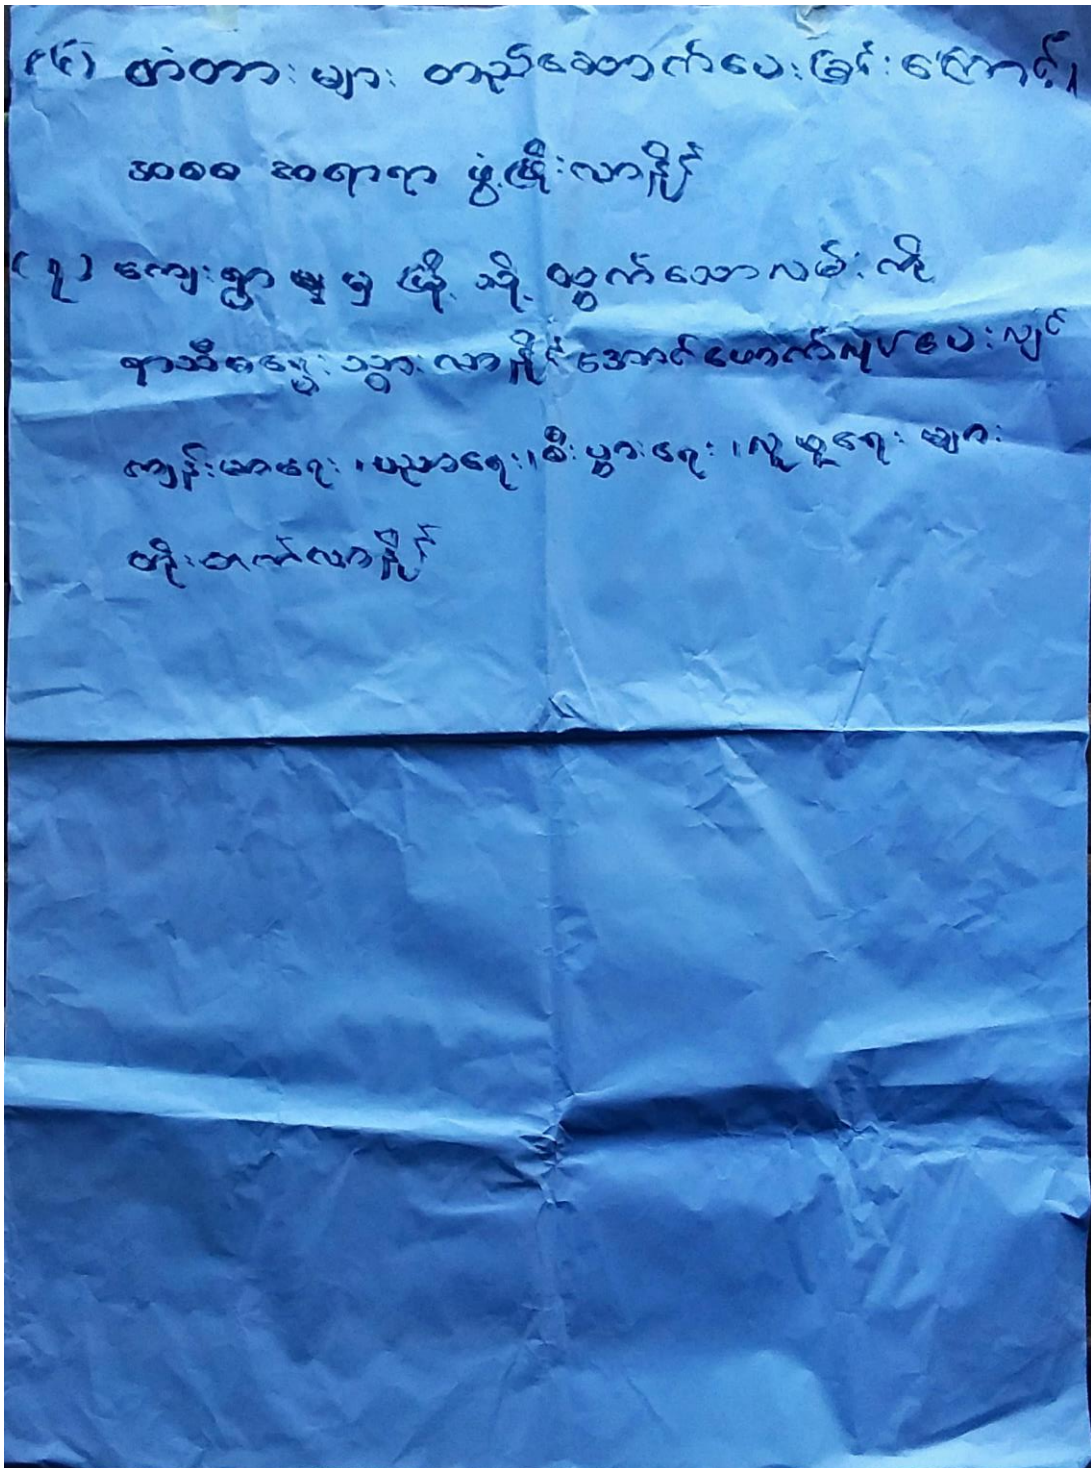 (၆) တံတား များ တည်ဆောက်ပေးခြင်းကြောင့်၊
အစစ အရာရာ ဖွံ့ဖြိုးလာနိုင်
(၇) ကျေးရွာ မှ မြို့ သို့ ထွက်သောလမ်း ကို
ရာသီမရွေး သွားလာနိုင်အောင်ဖောက်လုပ်ပေးလျှင်
ကျန်းမာရေး ၊ပညာရေး၊စီးပွားရေး ၊လူမှုရေး များ
တိုးတက်လာနိုင်